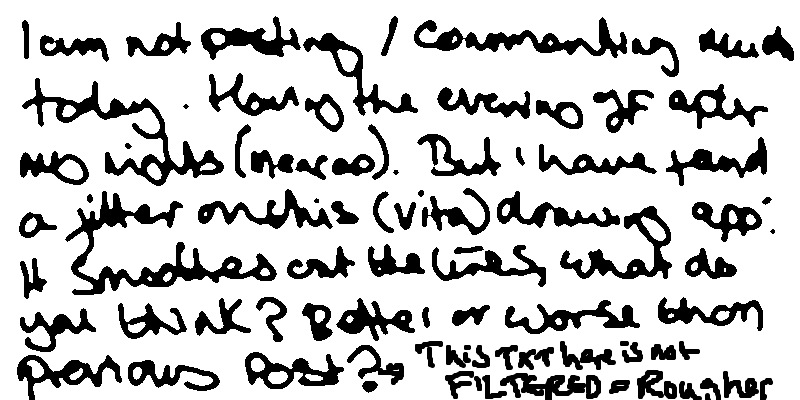 I am not posting / commenting much
today. Having the evening off after
my nights. But I have found
a jitter on this (vita) drawing app.
It smoothes out the lines, what do
you think? Better or worse than
previous post? → This TXT here is not
FILTERED = Rougher